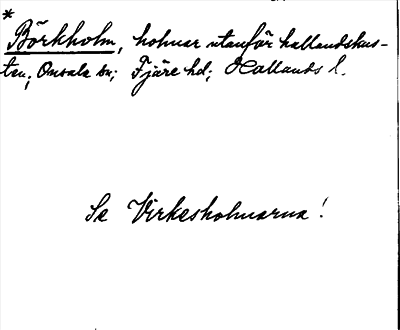 *
Börkholm, holmar utanför hallandskus-
ten; Onsala sn; Fjäre hd; Hallands l.
Se Virkesholmarna!